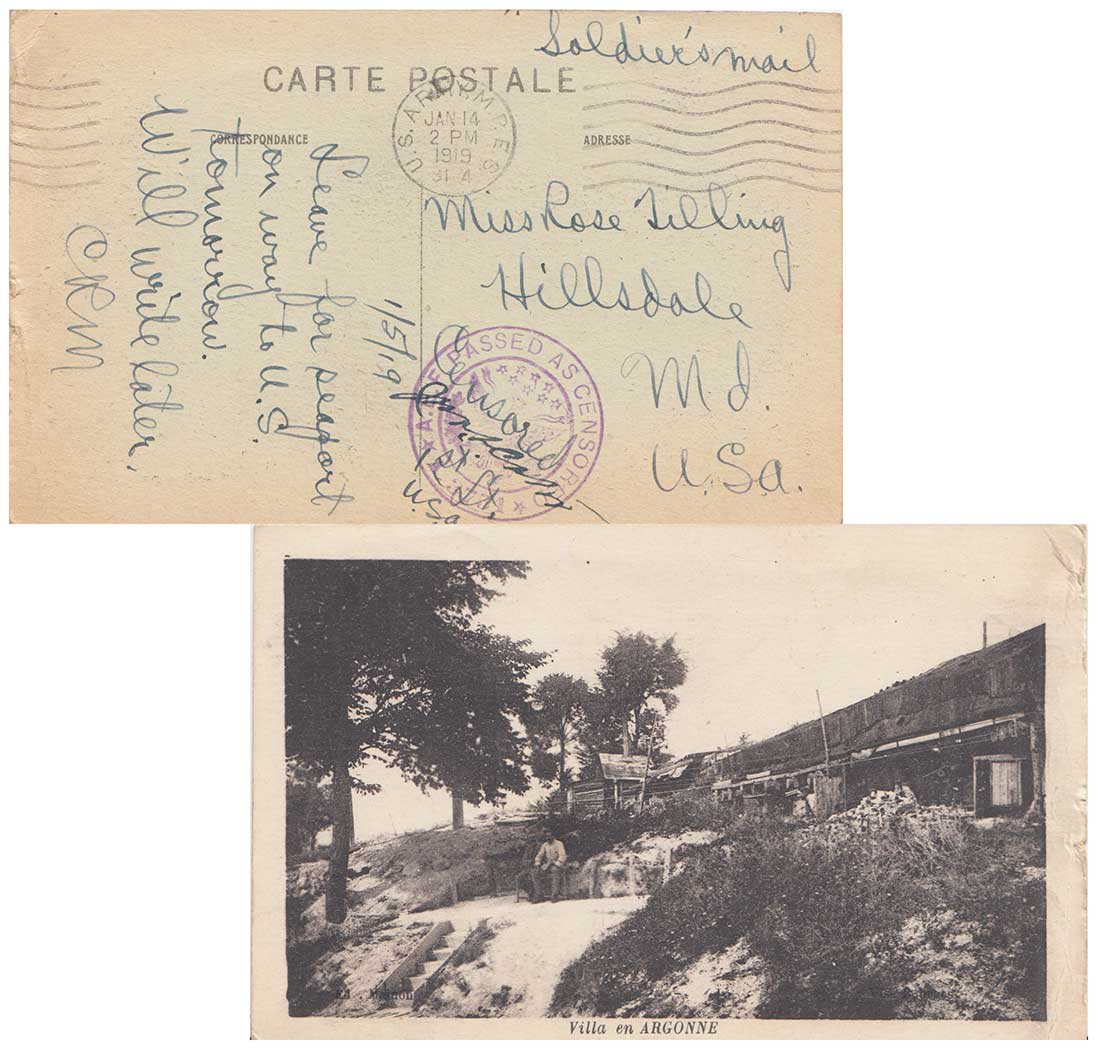 Soldier's mail
CARTE POSTALE
CORRESPONDANCE
ADRESSE
U.S. ARMY M.P.E.S.
JAN 14
2 PM
1919
Miss Rose Tilling
Hillsdale
Md.
U.Sa.
1/5/19
Leave for seaport
on way to U.S.
tomorrow.
Will write later.
CRM
A.E.F. PASSED AS CENSORED
Censored
1st Lt.
U.S.A
Villa en ARGONNE